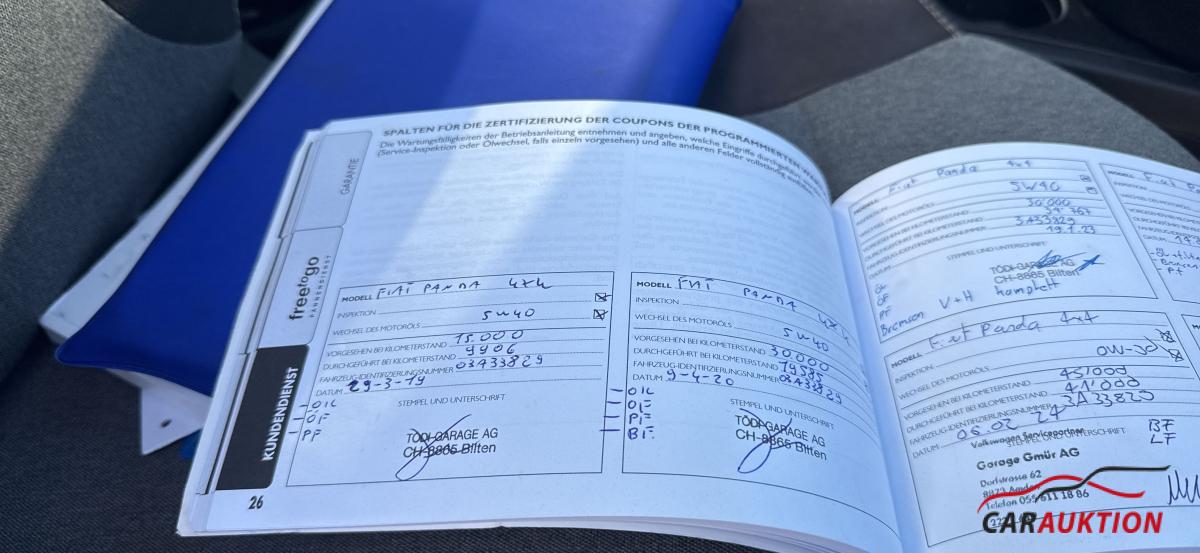 SPALTEN FÜR DIE ZERTIFIZIERUNG DER COUPONS DER PROGRAMMIERTEN
Die Wartungsfälligkeiten der Betriebsanleitung entnehmen und angeben, welche Eingriffe durchgeführt
(Service-Inspektion oder Ölwechsel, falls einzeln vorgesehen) und alle anderen Felder vollständig
GARANTIE
freetogo
PANNENDIENST
KUNDENDIENST
MODELL FIAT PANDA 4x4
INSPEKTION
WECHSEL DES MOTORÖLS 5W40
VORGESEHEN BEI KILOMETERSTAND 15.000
DURCHGEFÜHRT BEI KILOMETERSTAND 9906
FAHRZEUG-IDENTIFIZIERUNGSNUMMER 03A33829
DATUM 29-3-19
- OIL
- OF
- PF
STEMPEL UND UNTERSCHRIFT
TÖDI-GARAGE AG
CH-8865 Bilten
26
MODELL FIAT PANDA 4x4
INSPEKTION
WECHSEL DES MOTORÖLS 5W40
VORGESEHEN BEI KILOMETERSTAND 30.000
DURCHGEFÜHRT BEI KILOMETERSTAND
FAHRZEUG-IDENTIFIZIERUNGSNUMMER 03A33829
DATUM 9-4-20
- OIL
- OF
- PF
- BF
STEMPEL UND UNTERSCHRIFT
TÖDI-GARAGE AG
CH-8865 Bilten
MODELL Fiat Panda 4x4
INSPEKTION
5W40
30'000
3A33829
19.1.23
DATUM
STEMPEL UND UNTERSCHRIFT
TÖDI-GARAGE AG
CH-8865 Bilten
PF
Bremsen V+H komplett
MODELL Fiat Panda 4x4
INSPEKTION
WECHSEL DES MOTORÖLS 0W-30
VORGESEHEN BEI KILOMETERSTAND 45'000
DURCHGEFÜHRT BEI KILOMETERSTAND 41'000
FAHRZEUG-IDENTIFIZIERUNGSNUMMER 3A33829
DATUM 06.02.24
BF
LF
Volkswagen Servicepartner
Garage Gmür AG
Dorfstrasse 62
8873 Amden
Telefon 055 611 18 86
MODELL Fiat
CARAUKTION